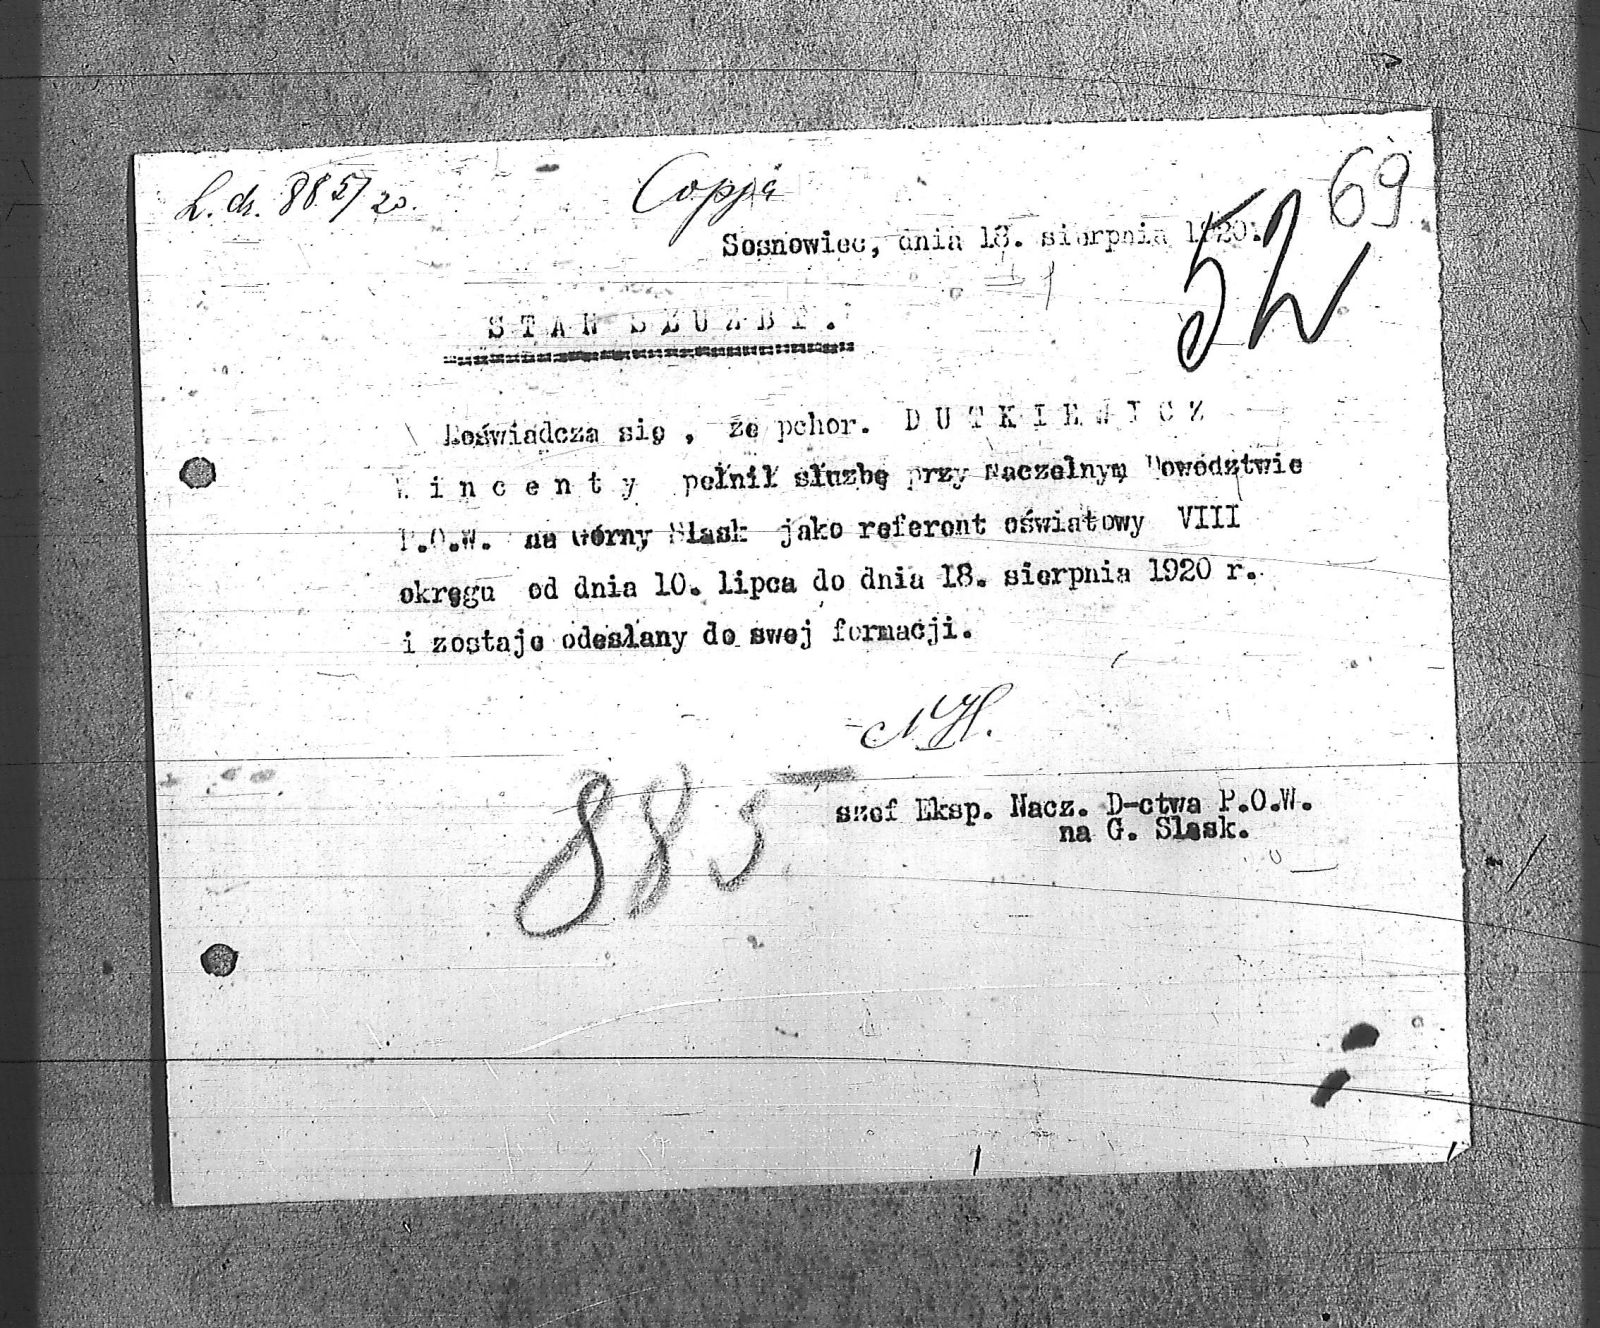 L. dz. 885/20.
Copja
69
52
Sosnowiec, dnia 18. sierpnia 1920.
S T A N S Ł U Ż B Y .
Doświadcza się , że pchor. D U T K I E W I C Z
W i n c e n t y pełnił służbę przy Naczelnym Dowództwie
P.O.W. na Górny Śląsk jako referent oświatowy VIII
okręgu od dnia 10. lipca do dnia 18. sierpnia 1920 r.
i zostaje odesłany do swej formacji.
885
szef Eksp. Nacz. D-ctwa P.O.W.
na G. Śląsk.